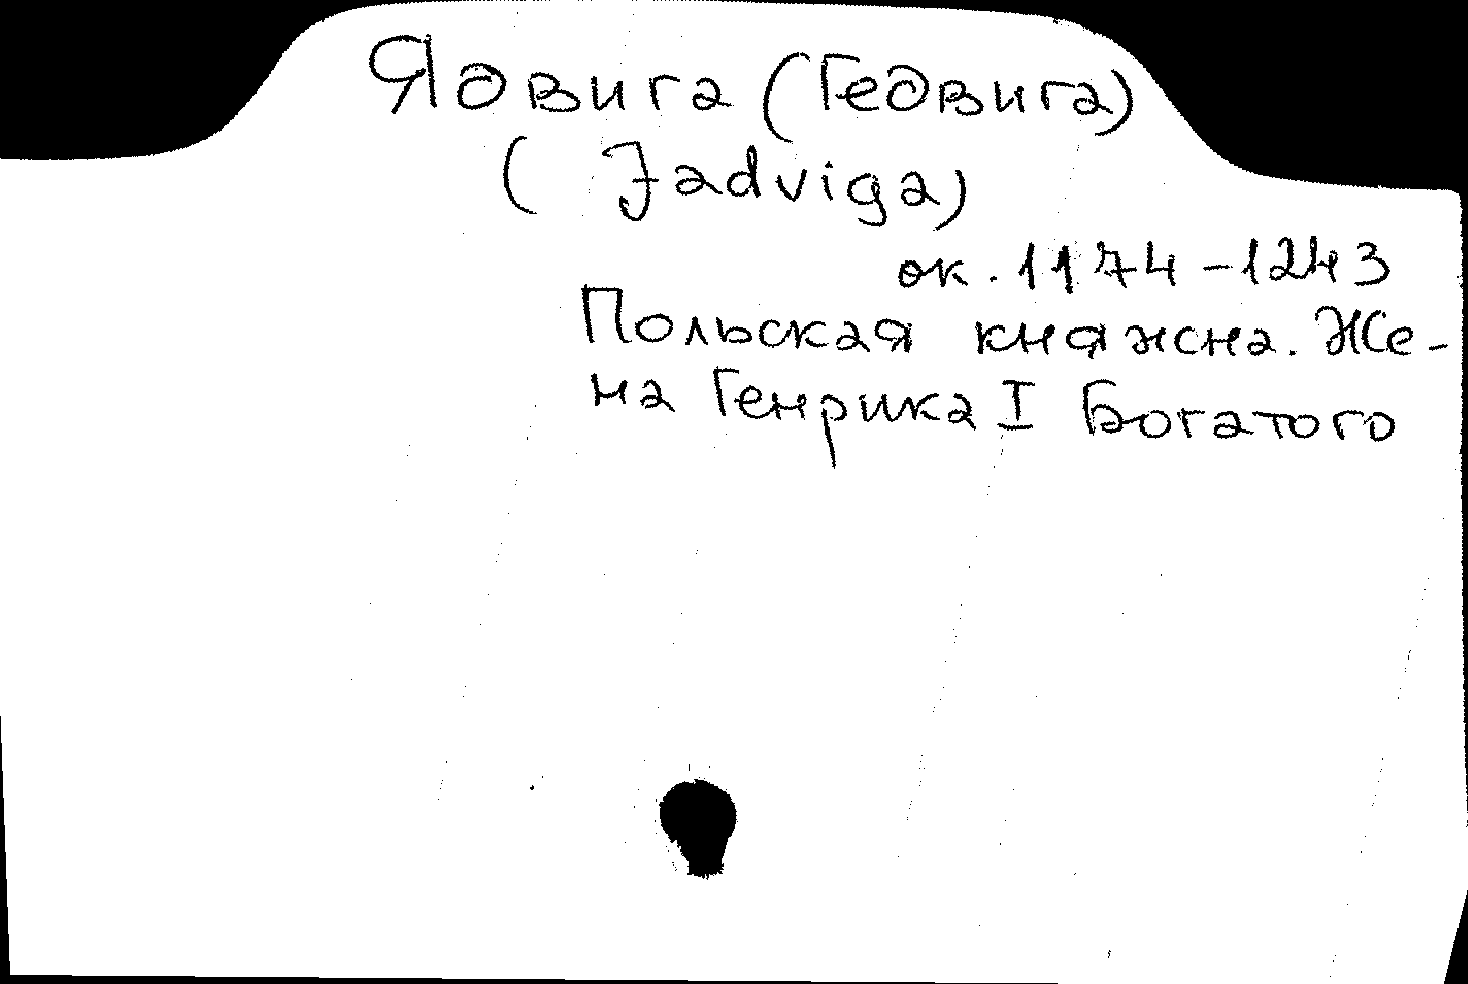 Ядвига (Гедвига)
( Jadviga)
ок. 1174 - 1243
Польская княжна. Же-
на Генрика I Богатого